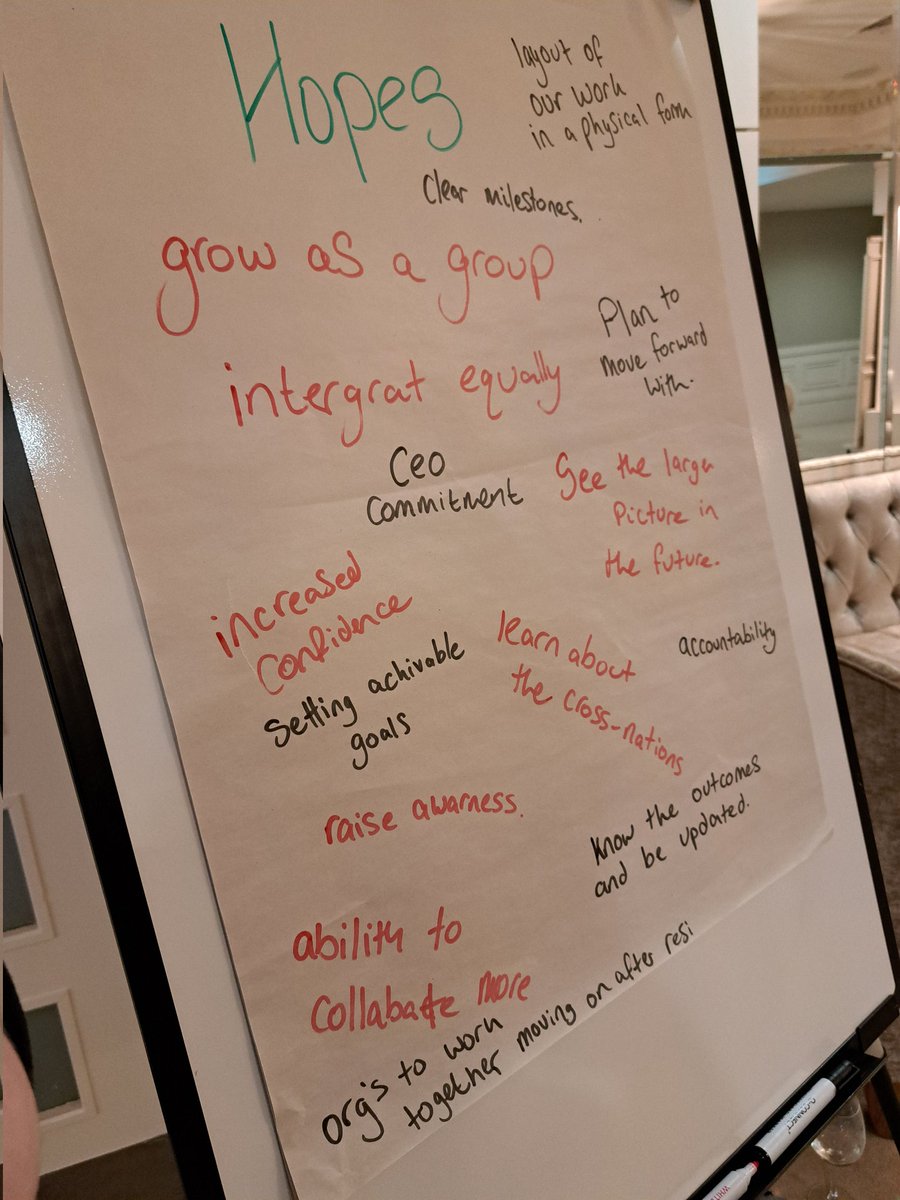 Hopes
layout of
our work
in a physical form
Clear milestones.
grow as a group
Plan to
move forward
with.
intergrat equally
Ceo
Commitment
See the larger
Picture in
the future.
increased
confidence
learn about
the cross-nations
accountability
Setting achivable
goals
raise awarness.
Know the outcomes
and be updated.
ability to
Collabatte more
org's to work
together moving on after resi